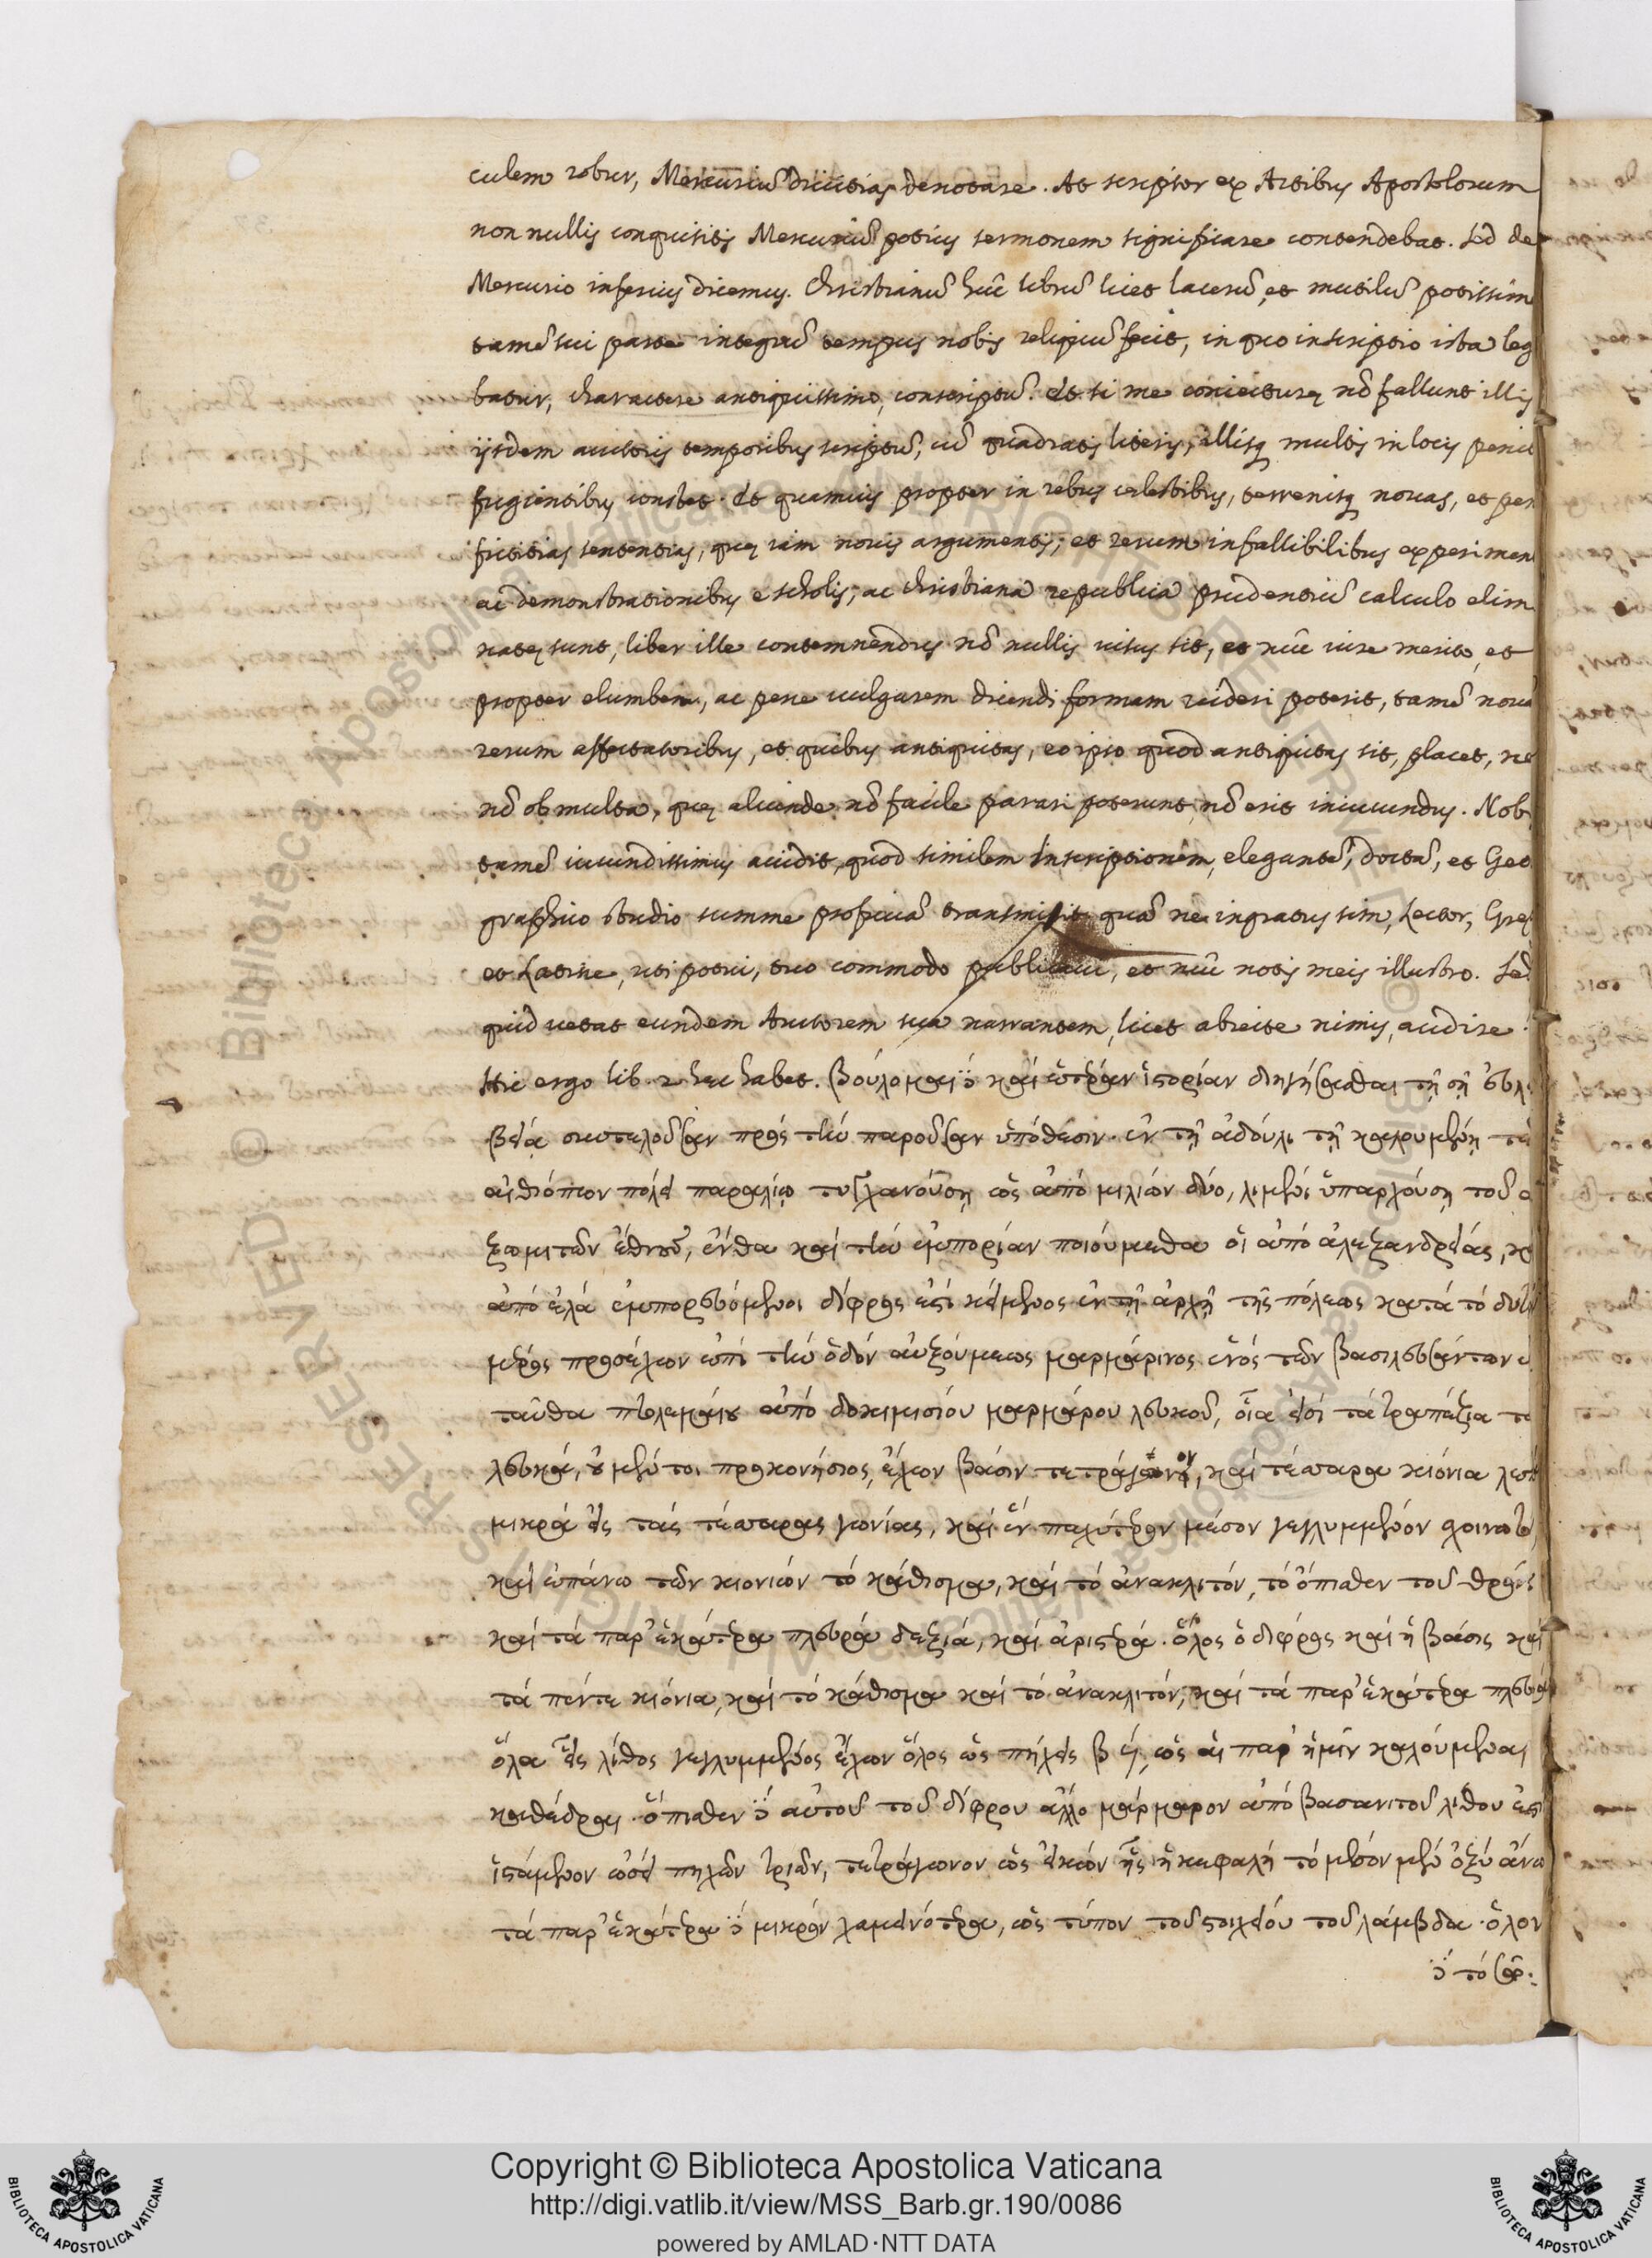 culem robur, Mercuriũ diuitias denotare. At scriptor ex Actibus Apostolorum
non nullis conquisitis Mercuriũ potius sermonem significare contendebat. Sed de
Mercurio inferius dicemus. Christianũ hũc librũ licet lacerũ, et mutilũ potissim
tamẽ sui parte integrũ tempus nobis reliquũ fecit, in quo inscriptio ista leg
batur, charactere antiquissimo, conscriptũ. Et si me coniecturę nõ fallunt illis
ijsdem auctoris temporibus scriptũ, cũ quadratis literis, illisq multis in locis penit
fugientibus constet. Et quamuis propter in rebus celestibus, terrenisq nouas, et per
fictitias sententias, quę iam nouis argumentis, et rerum infallibilibus experimen
ac demonstrationibus e scholis, ac Christiana republica prudentiũ calculo elim
natę sunt, liber ille contemnendus nõ nullis uisus sit, et nũc iure merito, et
propter elumbem, ac pene uulgarem dicendi formam uideri poterit, tamẽ noua
rerum affectatoribus, et quibus antiquitas, eo ipso quod antiquitas sit, placet, ne
nõ ob multa, quę aliunde nõ facile parari poterunt, nõ erit iniucundus. Nob
tamẽ iucundissimus accidit, quod similem Inscriptionem, elegantẽ, doctã, et Geo
graphico studio summe proficuã transmisit quã ne ingratus sim, Lector, Gręc
et Latine, uti potui, suo commodo publicaui, et nũc notis meis illustro. Sed
quid uetat eundem Auctorem sua narrantem, licet abiecte nimis, audire
Hic ergo lib. 2 hęc habet. βούλομαι δὲ καὶ ἑτέραν ἱστορίαν διηγήσασθαι τῇ σῇ εὐλα
βείᾳ συντελοῦσαν πρὸς τὴν παροῦσαν ὑπόθεσιν. ἐν τῇ ἀδούλι τῇ καλουμένῃ τῶ
αἰθιόπων πόλει παραλίῳ τυγχανούσῃ ὡς ἀπό μιλίων δύο, λιμένι ὑπαρχούσῃ τοῦ α
ξωμιτῶν ἔθνους, ἔνθα καὶ τὴν ἐμπορίαν ποιούμεθα οἱ ἀπό ἀλεξανδρείας, κ
ἀπό ἐλᾶ ἐμπορευόμενοι δίφρος ἐστὶ κείμενος ἐν τῇ ἀρχῇ τῆς πόλεως κατά τό δυτικ
μέρος προσέχων ἐπὶ τὴν ὁδόν αὐξούμεως μαρμάρινος ἑνός τῶν βασιλευσάντων ἐ
ταῦθα πτολεμαίου ἀπό δοκιμισίου μαρμάρου λευκοῦ, οἷα εἰσί τά τραπέζια τά
λευκά, οὐ μέν τοι προκονήσιος, ἔχων βάσιν τετράγωνον, καί τέσσαρα κιόνια λεπ
μικρά εἰς τάς τέσσαρας γωνίας, καί ἕν παχύτερον μέσον γεγλυμμένον σχοινωτό
καί ἐπάνω τῶν κιονιών τό κάθισμα, καί τό ἀνακλιτόν, τό ὄπισθεν τοῦ θρόνου
καί τά παρ' ἑκάτερα πλευρά δεξιά, καί ἀριστερά. ὅλος ὁ δίφρος καί ἡ βάσις καί
τά πέντε κιόνια, καί τό κάθισμα καί τό ἀνακλιτόν, καί τά παρ' ἑκάτερα πλευρά
ὅλα εἷς λίθος γεγλυμμένος ἔχων ὅλος ὡς πήχεις β ϛ, ὡς αἱ παρ' ἡμῖν καλούμεναι
καθέδραι. ὄπισθεν δὲ αὐτοῦ τοῦ δίφρου ἄλλο μάρμαρον ἀπό βασανιτοῦ λίθου ἐστ
ἱστάμενον ὡσεί πηχῶν τριῶν, τετράγωνον ὡς εἰκών ἧς ἡ κεφαλή τό μέσον μέν ὀξύ ἄνω
τά παρ' ἑκάτερα δὲ μικρόν χαμεινότερα, ὡς τύπον τοῦ στοιχείου τοῦ λάμβδα. ὅλον
δὲ τό σῶ:
Copyright © Biblioteca Apostolica Vaticana
http://digi.vatlib.it/view/MSS_Barb.gr.190/0086
powered by AMLAD·NTT DATA
BIBLIOTECA APOSTOLICA VATICANA
BIBLIOTECA APOSTOLICA VATICANA